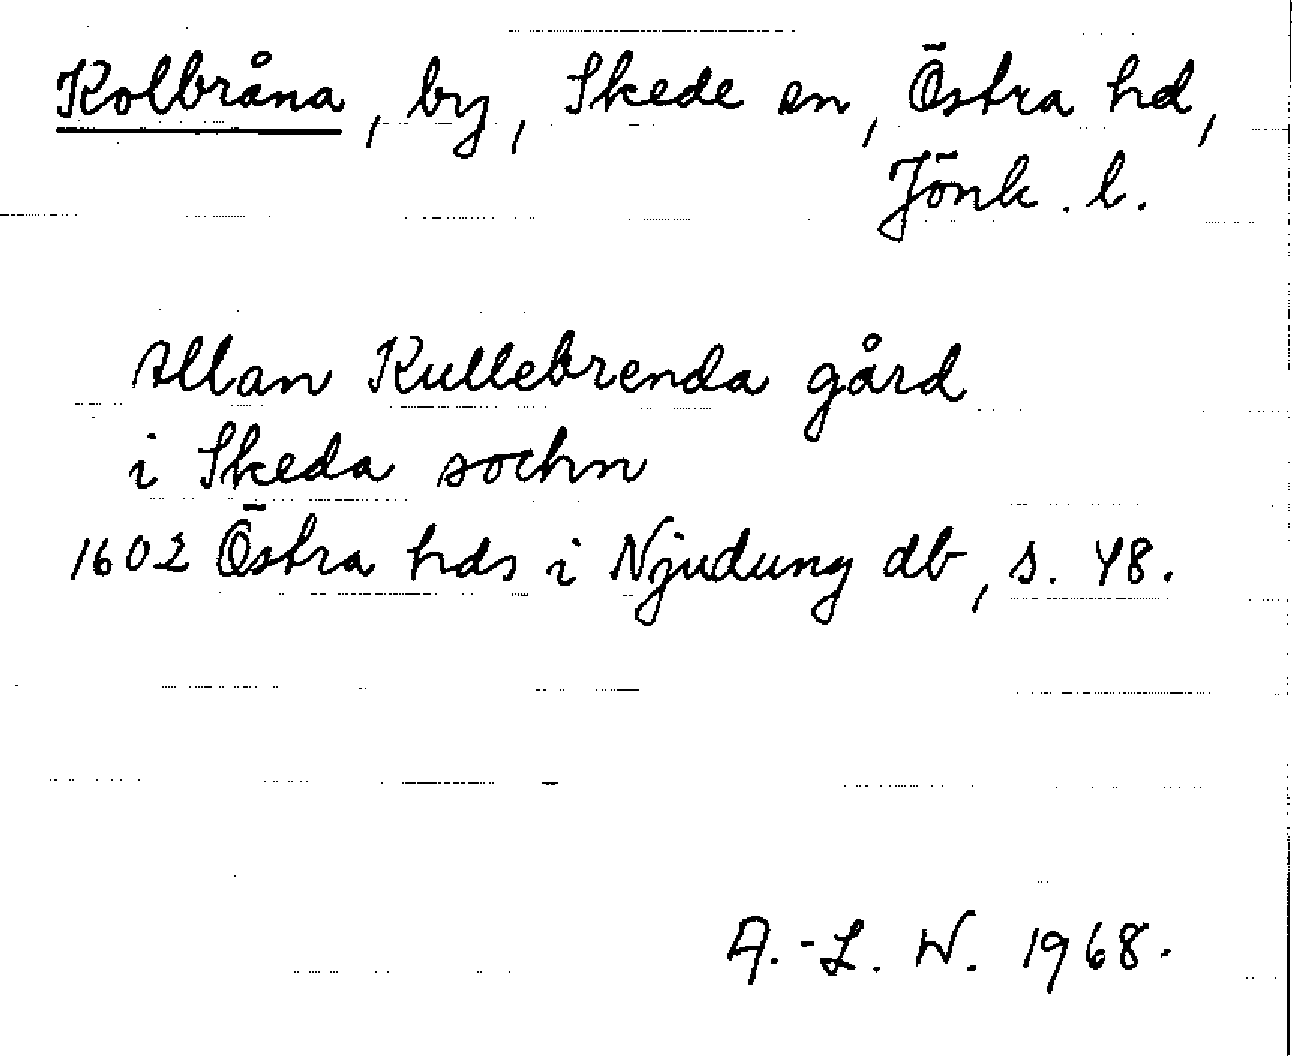 Kolbråna, by, Skede sn, Östra hd,
Jönk. l.
Allan Kullebrenda gård
i Skeda sochn
1602 Östra hds i Njudung db, s. 48.
A.-L. W. 1968.